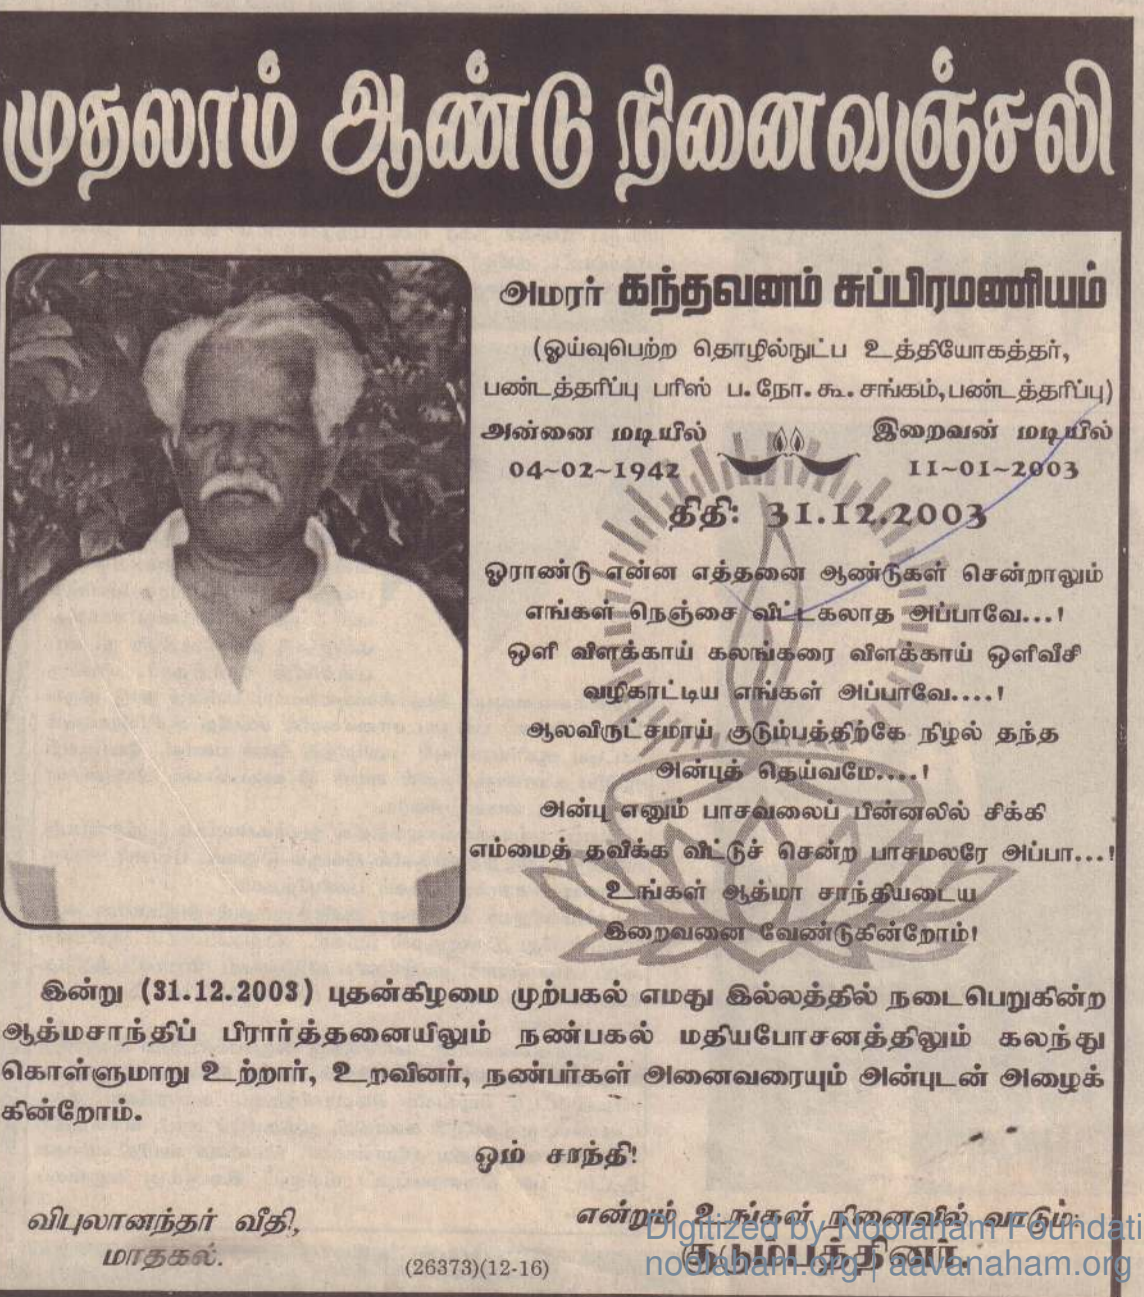 முதலாம் ஆண்டு நினைவஞ்சலி
அமரர் கந்தவனம் சுப்பிரமணியம்
(ஓய்வுபெற்ற தொழில்நுட்ப உத்தியோகத்தர்,
பண்டத்தரிப்பு பரிஸ் ப.நோ.கூ.சங்கம்,பண்டத்தரிப்பு)
அன்னை மடியில் இறைவன் மடியில்
04~02~1942 11~01~2003
திதி: 31.12.2003
ஓராண்டு என்ன எத்தனை ஆண்டுகள் சென்றாலும்
எங்கள் நெஞ்சை விட்டகலாத அப்பாவே...!
ஒளி விளக்காய் கலங்கரை விளக்காய் ஒளிவீசி
வழிகாட்டிய எங்கள் அப்பாவே....!
ஆலவிருட்சமாய் குடும்பத்திற்கே நிழல் தந்த
அன்புத் தெய்வமே....!
அன்பு எனும் பாசவலைப் பின்னலில் சிக்கி
எம்மைத் தவிக்க விட்டுச் சென்ற பாசமலரே அப்பா...!
உங்கள் ஆத்மா சாந்தியடைய
இறைவனை வேண்டுகின்றோம்!
இன்று (31.12.2003) புதன்கிழமை முற்பகல் எமது இல்லத்தில் நடைபெறுகின்ற
ஆத்மசாந்திப் பிரார்த்தனையிலும் நண்பகல் மதியபோசனத்திலும் கலந்து
கொள்ளுமாறு உற்றார், உறவினர், நண்பர்கள் அனைவரையும் அன்புடன் அழைக்
கின்றோம்.
ஓம் சாந்தி!
விபுலானந்தர் வீதி, என்றும் உங்கள் நினைவில் வாடும்
மாதகல். (26373)(12-16) குடும்பத்தினர்.
Digitized by Noolaham Foundati
noolaham.org | aavanaham.org